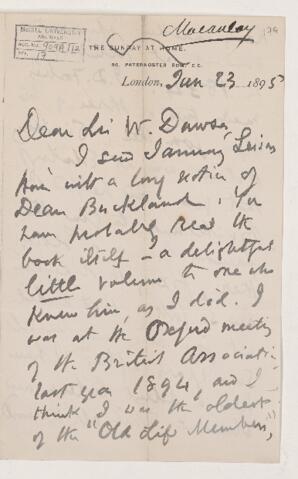 Macaulay
McGILL UNIVERSITY
ARCHIVES
ACC. NO.
THE SUNDAY AT HOME.
56, PATERNOSTER ROW, E.C.
London, Jun 23 1895
Dear Sir W. Dawson
I send January Leisure
Hour with a long notice of
Dean Buckland. You
have probably read the
book itself - a delightful
little volume to one who
knew him, as I did. I
was at the Oxford meeting
of the British Association
last year 1894, and I
think I was the oldest
of the "Old Life Members",